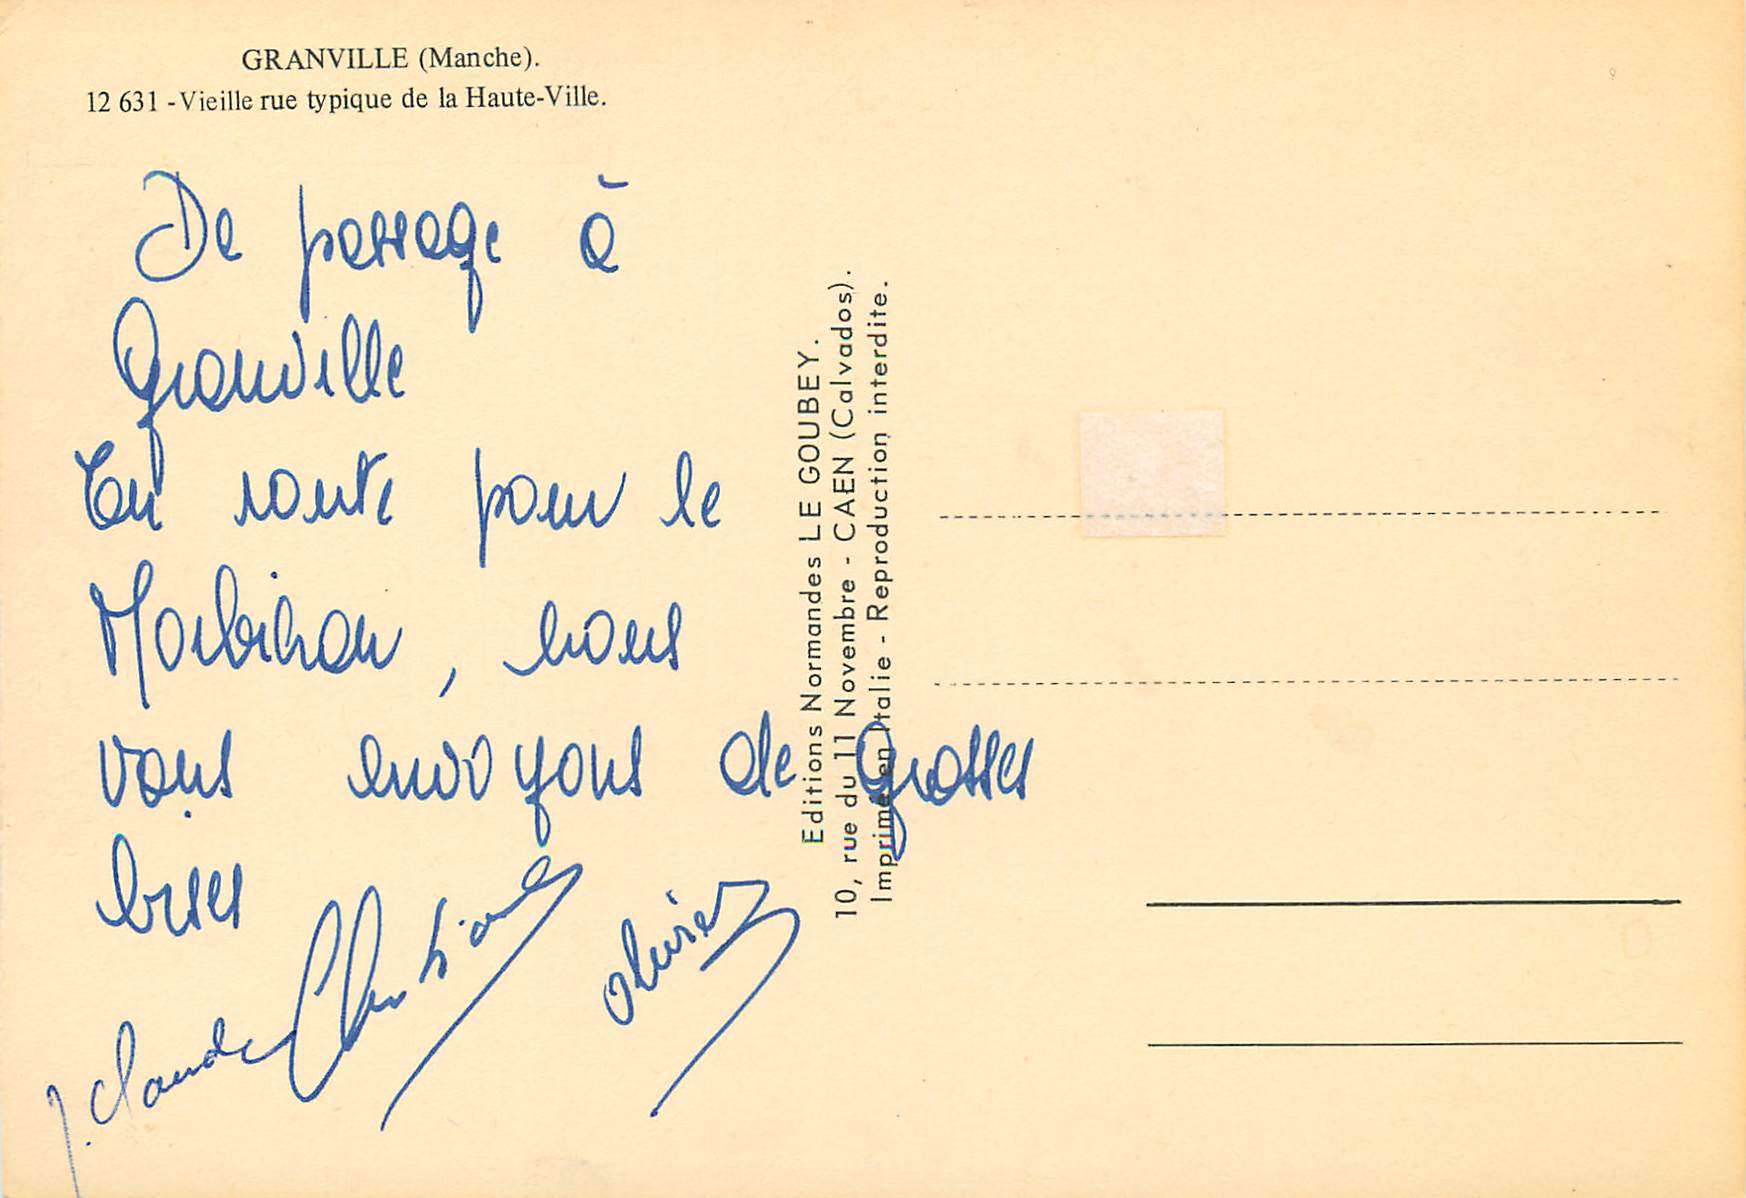 GRANVILLE (Manche).
12 631 - Vieille rue typique de la Haute-Ville.
De passage à
Granville
En route pour le
Morbihan, nous
vous envoyons de grosses
bises
J. Claude Christiane Olivier
Editions Normandes LE GOUBEY.
10, rue du 11 Novembre - CAEN (Calvados).
Imprimé en Italie - Reproduction interdite.